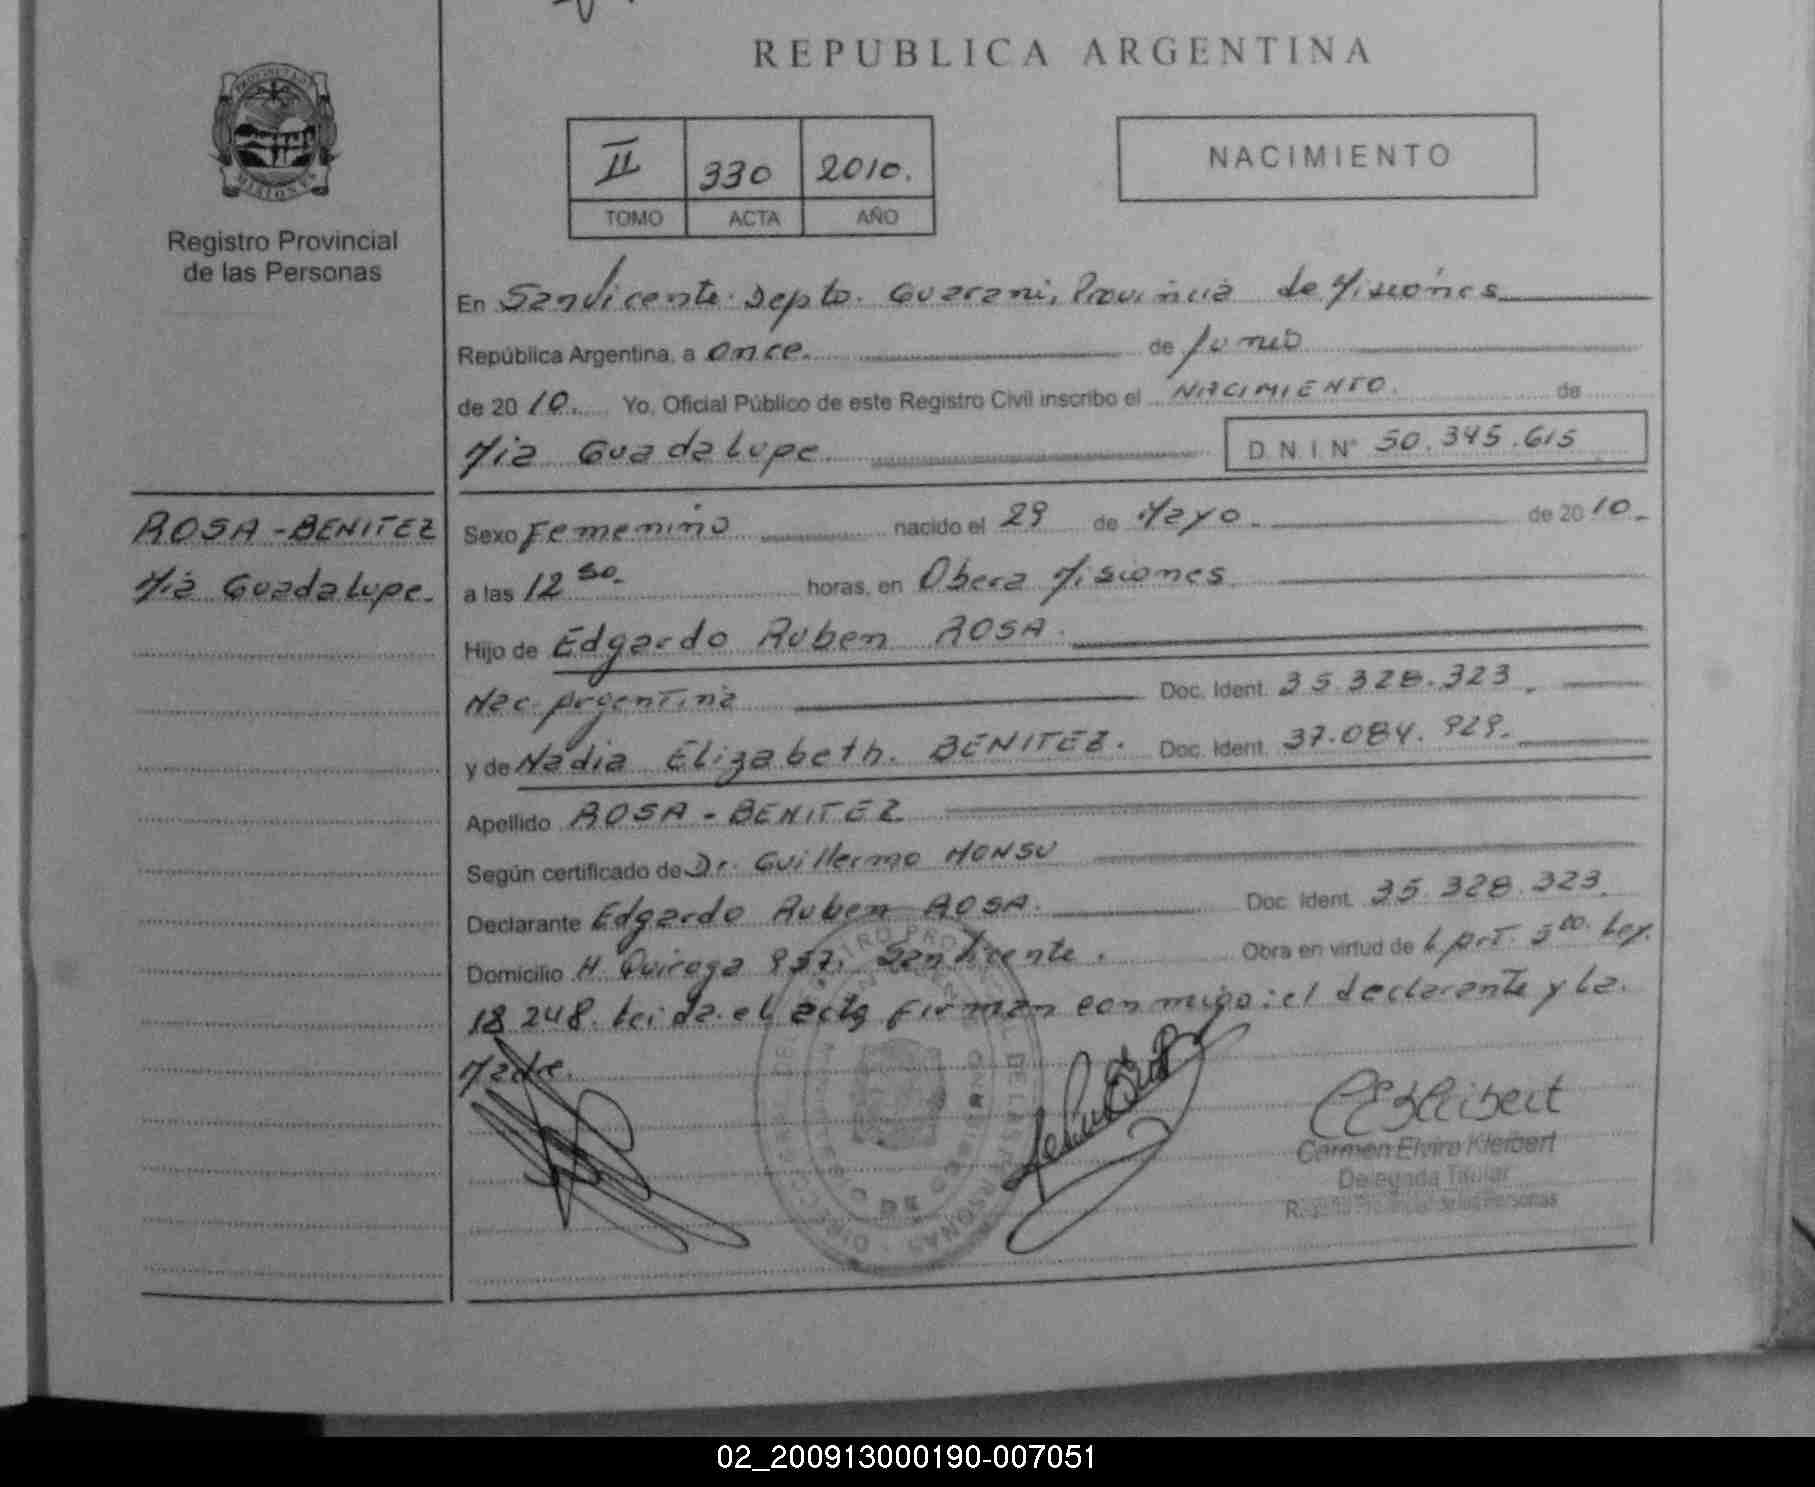 REPUBLICA ARGENTINA
PROVINCIA DE
MISIONES
Registro Provincial
de las Personas
II 330 2010.
TOMO ACTA AÑO
NACIMIENTO
En San Vicente Depto. Guarani, Provincia de Misiones
República Argentina, a once. de Junio
de 20 10. Yo, Oficial Público de este Registro Civil inscribo el NACIMIENTO. de
Mia Guadalupe. D.N.I. N° 50.345.615
ROSA-BENITEZ
Mia Guadalupe.
Sexo Femenino nacido el 29 de Mayo. de 20 10.
a las 12 horas, en Obera Misiones
Hijo de Edgardo Ruben ROSA.
Nac. Argentina Doc. Ident. 35.328.323.
y de Nadia Elizabeth. BENITEZ. Doc. Ident. 37.084.929.
Apellido ROSA - BENITEZ
Según certificado de Dr. Guillermo MONSU
Declarante Edgardo Ruben ROSA. Doc. Ident. 35.328.323.
Domicilio H. Quiroga 957, San Vicente. Obra en virtud de L Art. 500. Ley.
18.248. Leida el acta firman conmigo: el declarante y La.
Madre.
Carmen Elvira Kleibert
Delegada Titular
Personas
02_200913000190-007051